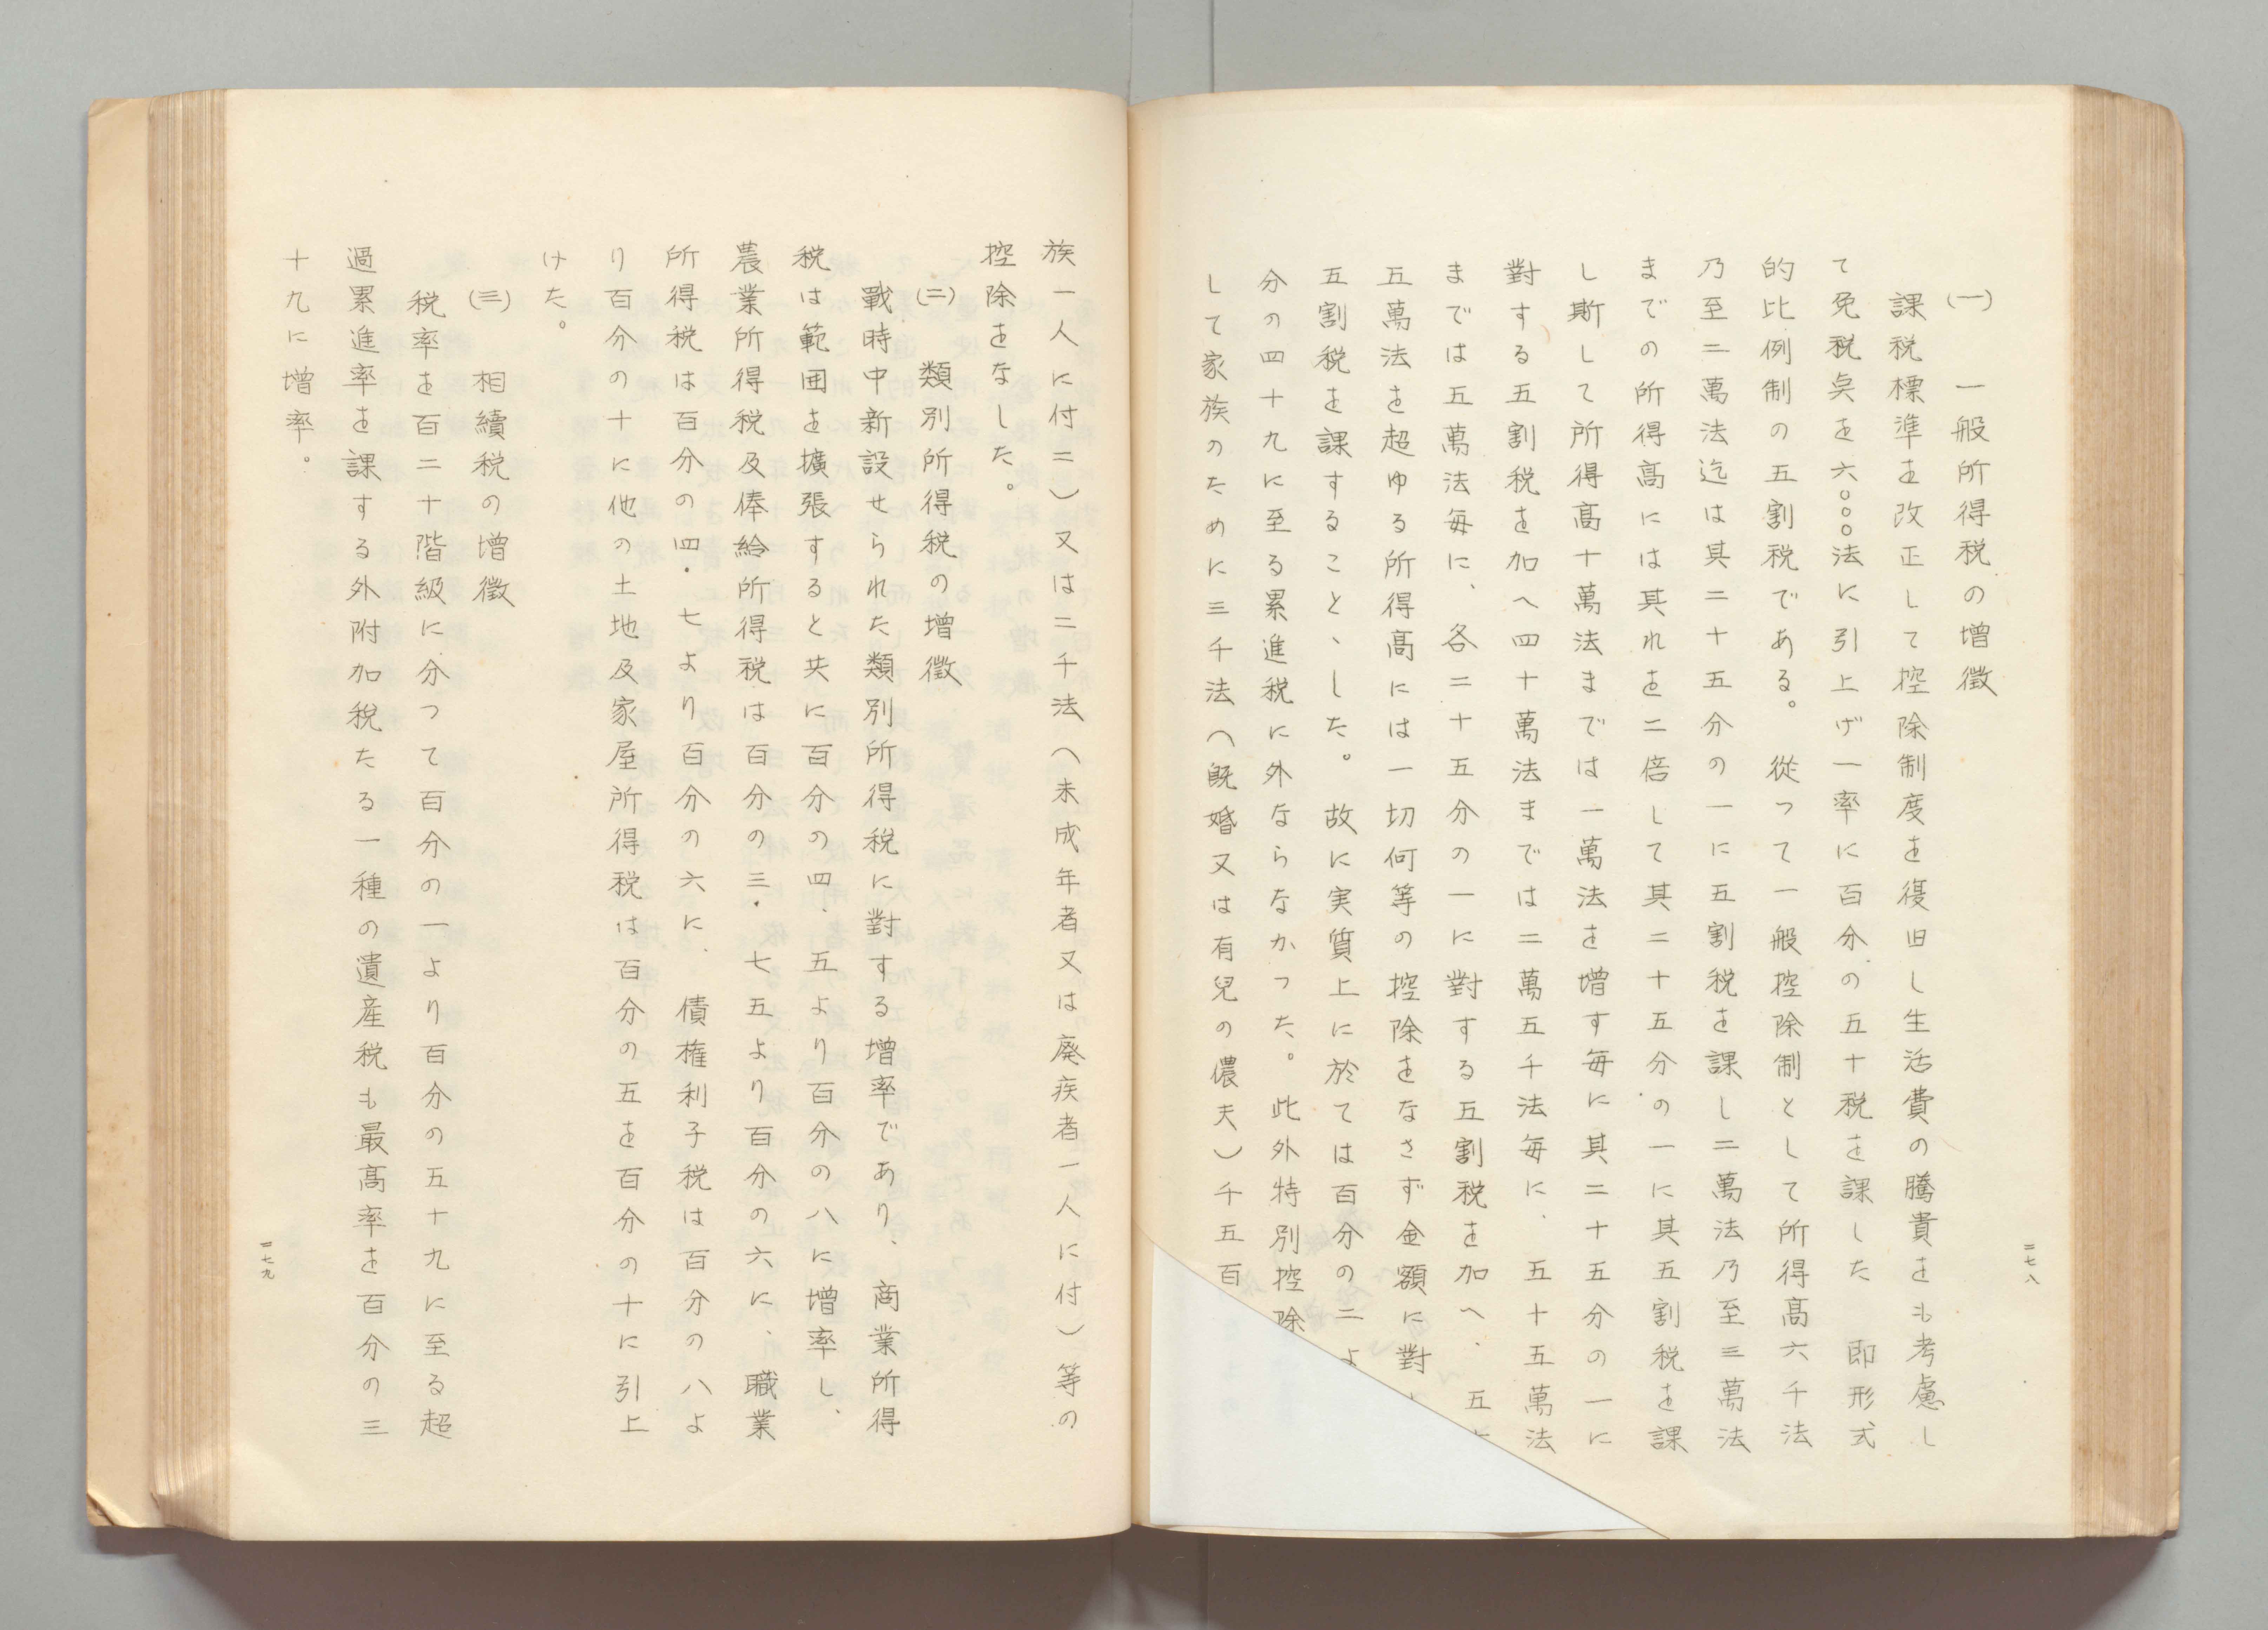 二七八
(一)　一般所得税の增徵
課税標準を改正して控除制度を復旧し生活費の騰貴をも考慮し
て免税点を六〇〇〇法に引上げ一率に百分の五十税を課した　即形式
的比例制の五割税である。　從つて一般控除制として所得高六千法
乃至二萬法迄は其二十五分の一に五割税を課し二萬法乃至三萬法
までの所得高には其れを二倍して其二十五分の一に其五割税を課
し斯して所得高十萬法までは一萬法を増す毎に其二十五分の一に
對する五割税を加へ四十萬法までは二萬五千法毎に、五十五萬法
までは五萬法毎に、各二十五分の一に對する五割税を加へ、五
五萬法を超ゆる所得高には一切何等の控除をなさず金額に對
五割税を課すること、した。故に実質上に於ては百分の二よ
分の四十九に至る累進税に外ならなかつた。此外特別控除
して家族のために三千法（既婚又は有兒の儂夫）千五百
族一人に付二）又は二千法（未成年者又は廢疾者一人に付）等の
控除をなした。
(二)　類別所得税の增徵
戰時中新設せられた類別所得税に對する增率であり、商業所得
税は範囲を擴張すると共に百分の四、五より百分の八に增率し、
農業所得税及俸給所得税は百分の三・七五より百分の六に、職業
所得税は百分の四・七より百分の六に、債権利子税は百分の八よ
り百分の十に他の土地及家屋所得税は百分の五を百分の十に引上
けた。
(三)　相續税の增徵
税率を百二十階級に分つて百分の一より百分の五十九に至る超
過累進率を課する外附加税たる一種の遺産税も最高率を百分の三
十九に增率。
二七九